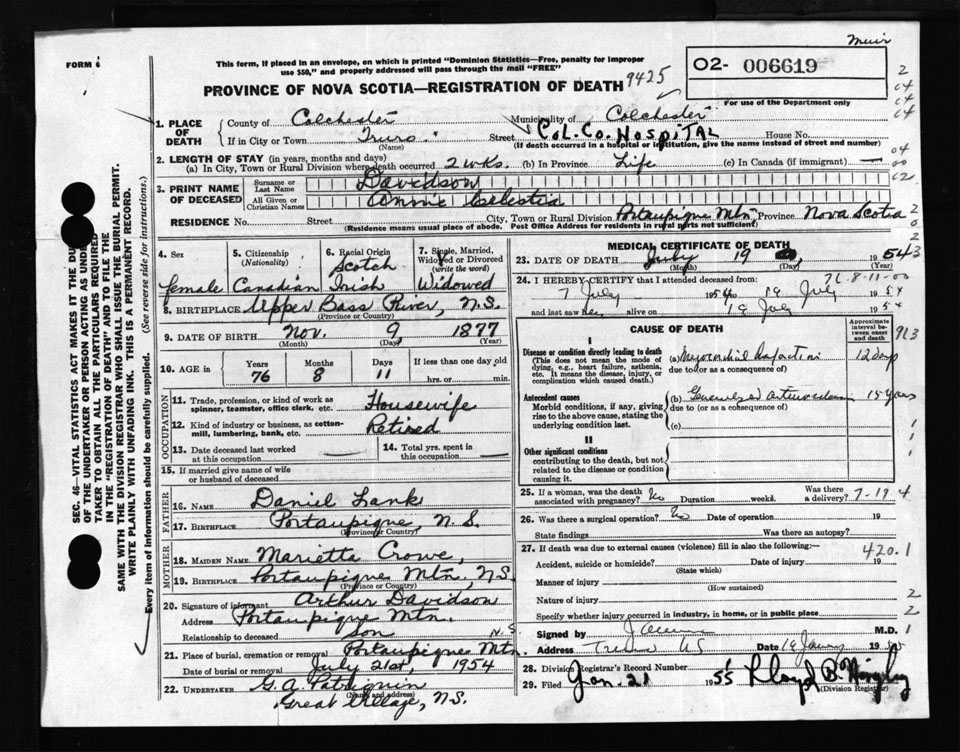 Muir
FORM 6
This form, if placed in an envelope, on which is printed "Dominion Statistics—Free, penalty for improper
use $50," and properly addressed will pass through the mail "FREE"
9425
O2- 006619
PROVINCE OF NOVA SCOTIA—REGISTRATION OF DEATH
For use of the Department only
1. PLACE OF DEATH
County of Colchester Municipality of Colchester
If in City or Town Truro Street Col. Co. Hospital House No.
(Name) (If death occurred in a hospital or institution, give the name instead of street and number)
2. LENGTH OF STAY (in years, months and days)
(a) In City, Town or Rural Division where death occurred 2 wks. (b) In Province Life (c) In Canada (if immigrant) —
3. PRINT NAME OF DECEASED
Surname or Last Name Davidson
All Given or Christian Names Annie Celestia
RESIDENCE No. Street City, Town or Rural Division Portaupique Mtn, Province Nova Scotia
(Residence means usual place of abode. Post Office Address for residents in rural parts not sufficient)
4. Sex female
5. Citizenship (Nationality) Canadian
6. Racial Origin Scotch Irish
7. Single, Married, Widowed or Divorced (write the word) Widowed
8. BIRTHPLACE Upper Bass River, N.S.
(Province or Country)
9. DATE OF BIRTH Nov. 9 1877
(Month) (Day) (Year)
10. AGE in Years 76 Months 8 Days 11 If less than one day old
hrs. or min.
OCCUPATION
11. Trade, profession, or kind of work as spinner, teamster, office clerk, etc. Housewife
12. Kind of industry or business, as cotton-mill, lumbering, bank, etc. Retired
13. Date deceased last worked at this occupation —
14. Total yrs. spent in this occupation —
15. If married give name of wife or husband of deceased
FATHER
16. NAME Daniel Lank
17. BIRTHPLACE Portaupique, N.S.
(Province or Country)
MOTHER
18. MAIDEN NAME Marietta Crowe,
19. BIRTHPLACE Portaupique Mtn, N.S.
(Province or Country)
20. Signature of informant Arthur Davidson
Address Portaupique Mtn. N.S
Relationship to deceased son
21. Place of burial, cremation or removal Portaupique Mtn.
Date of burial or removal July 21st 1954
22. UNDERTAKER G. A. Patriquin
(Name and address)
Great Village, N.S.
MEDICAL CERTIFICATE OF DEATH
23. DATE OF DEATH July 19 1954
(Month) (Day) (Year)
24. I HEREBY CERTIFY that I attended deceased from:
7 July 1954 to 19 July 1954
and last saw alive on 19 July 1954
CAUSE OF DEATH
Approximate interval between onset and death
I
Disease or condition directly leading to death
(This does not mean the mode of dying, e.g., heart failure, asthenia, etc. It means the disease, injury, or complication which caused death.)
(a) Myocardial Infarction 12 days
due to (or as a consequence of)
Antecedent causes
Morbid conditions, if any, giving rise to the above cause, stating the underlying condition last.
(b) Generalized arteriosclerosis 15 years
due to (or as a consequence of)
(c)
II
Other significant conditions
contributing to the death, but not related to the disease or condition causing it.
25. If a woman, was the death associated with pregnancy? No Duration weeks. Was there a delivery?
7-19 4
26. Was there a surgical operation? No Date of operation 19
State findings Was there an autopsy?
27. If death was due to external causes (violence) fill in also the following:—
420.1
Accident, suicide or homicide? Date of injury 19
(State which)
Manner of injury
(How sustained)
Nature of injury
Specify whether injury occurred in industry, in home, or in public place
Signed by M.D.
Address Truro NS Date
28. Division Registrar's Record Number
29. Filed Jan. 21 1955
(Division Registrar)
SEC. 46—VITAL STATISTICS ACT MAKES IT THE DU
OF THE UNDERTAKER OR PERSON ACTING AS UNDE
TAKER TO OBTAIN ALL THE PARTICULARS REQUIRED
IN THE "REGISTRATION OF DEATH" AND TO FILE THE
SAME WITH THE DIVISION REGISTRAR WHO SHALL ISSUE THE BURIAL PERMIT.
WRITE PLAINLY WITH UNFADING INK. THIS IS A PERMANENT RECORD.
Every item of information should be carefully supplied. (See reverse side for instructions.)